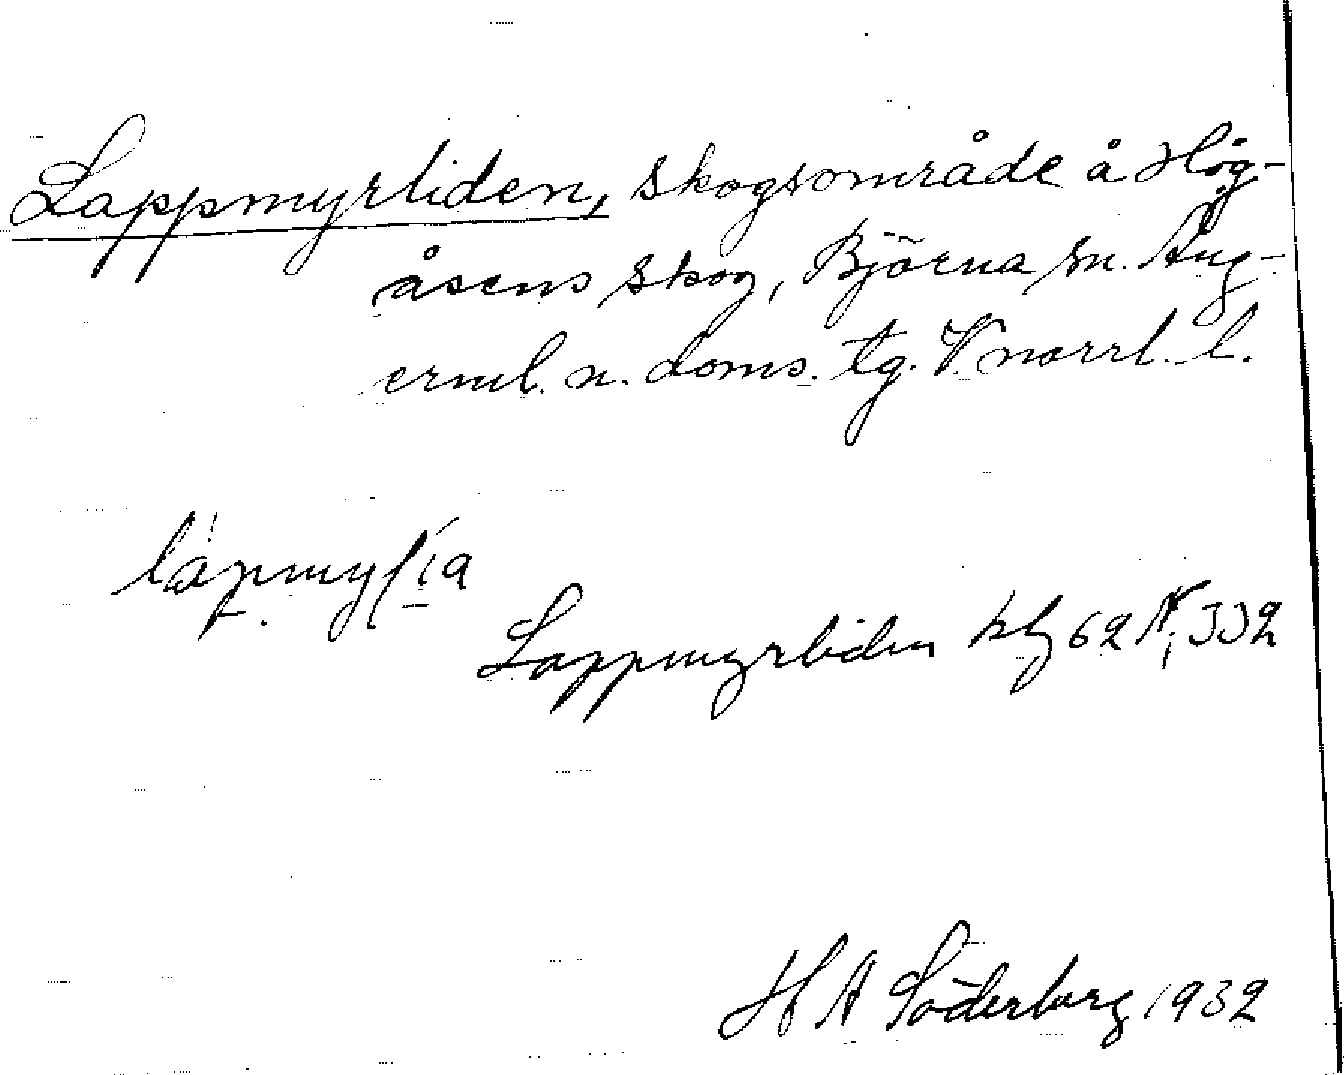 Lappmyrliden, skogsområde å Hög-
åsens skog, Björna sn. Ång-
erml. n. doms. tg. V norrl. l.
Lappmyrliden 62
H A Söderberg 1932